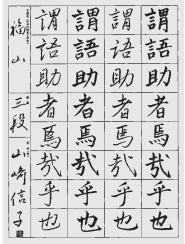 謂語助者焉哉乎也
謂語助者焉哉乎也
謂語助者焉哉乎也
謂語助者焉哉乎也
福山 三段 山崎信子